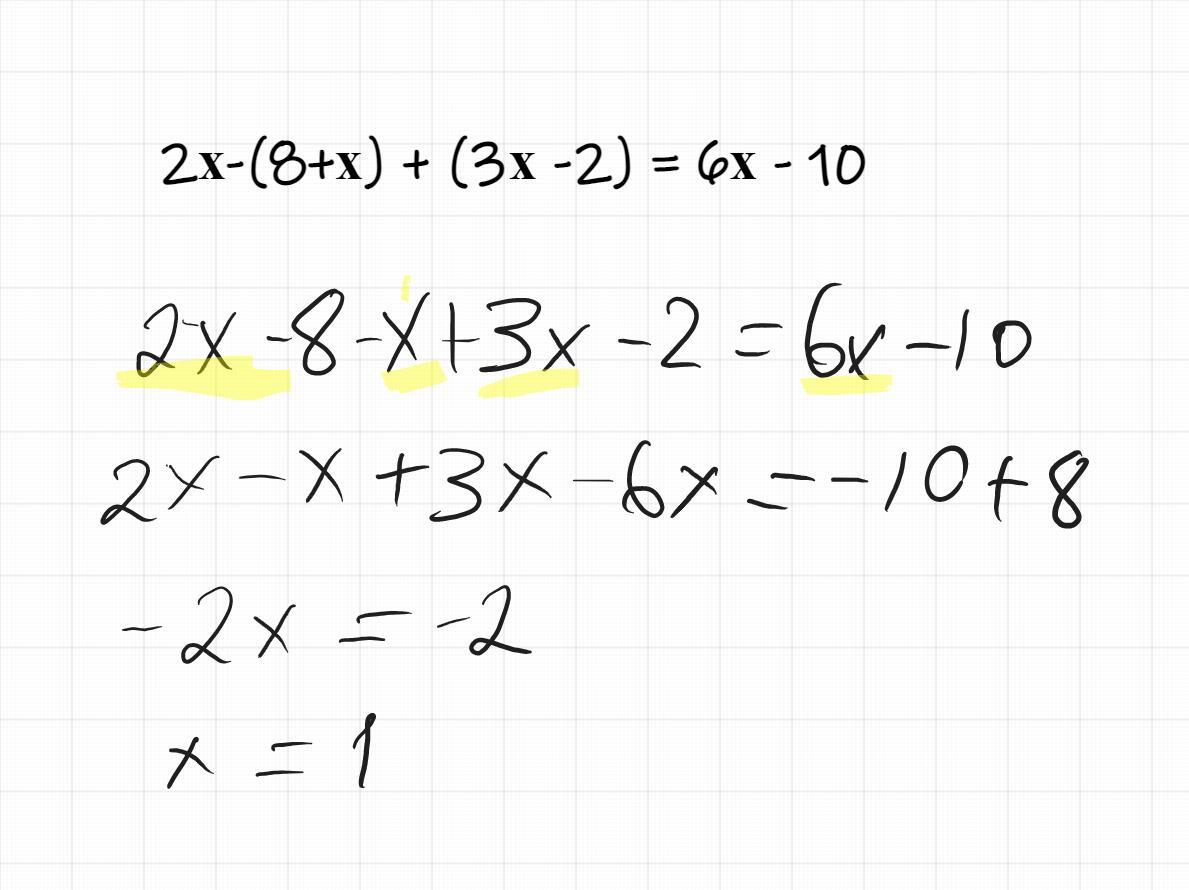 2x-(8+x) + (3x -2) = 6x - 10
2x -8 -x +3x -2 = 6x -10
2x - x +3x -6x = -10 +8
-2x = -2
x = 1